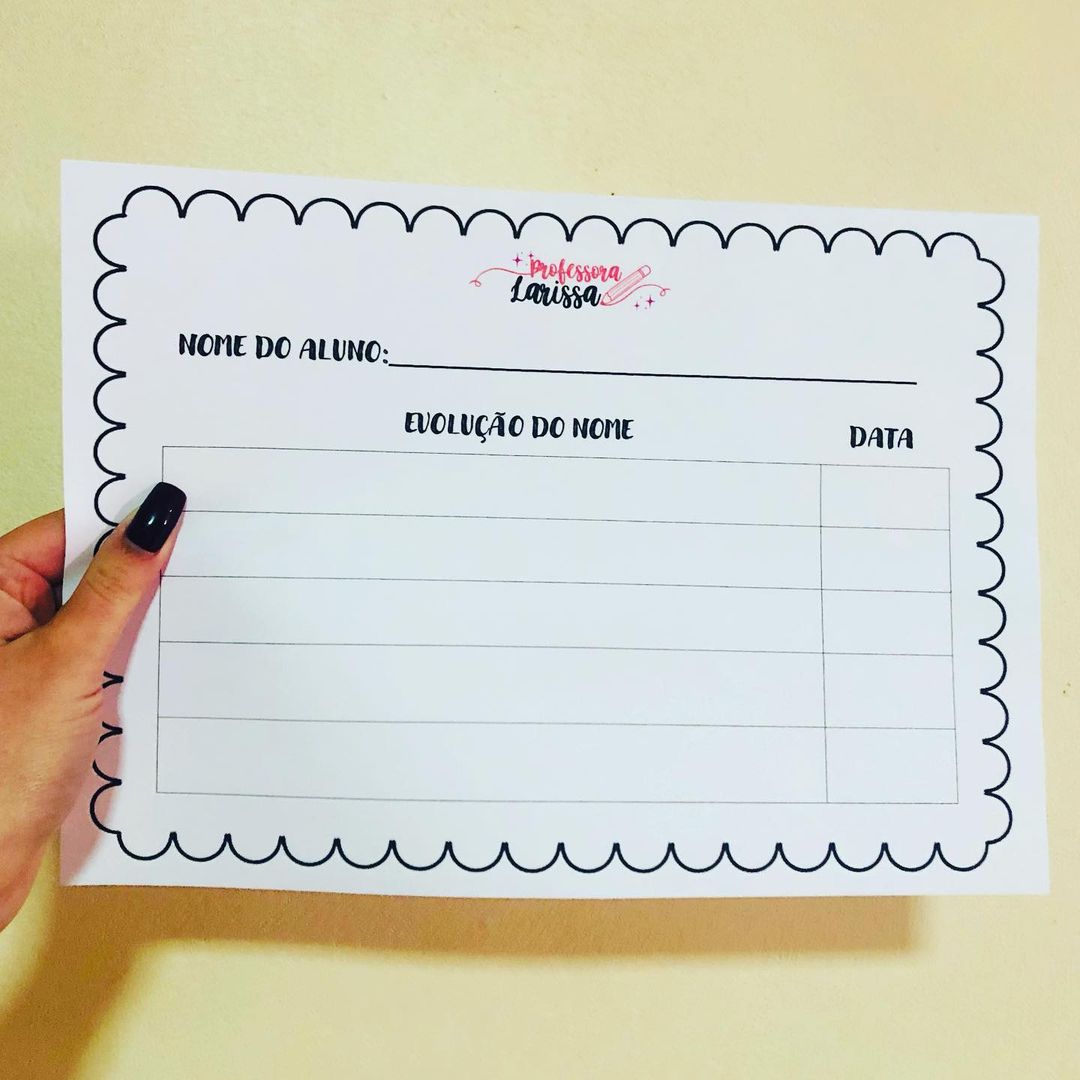 Professora
Larissa
NOME DO ALUNO:
EVOLUÇÃO DO NOME
DATA